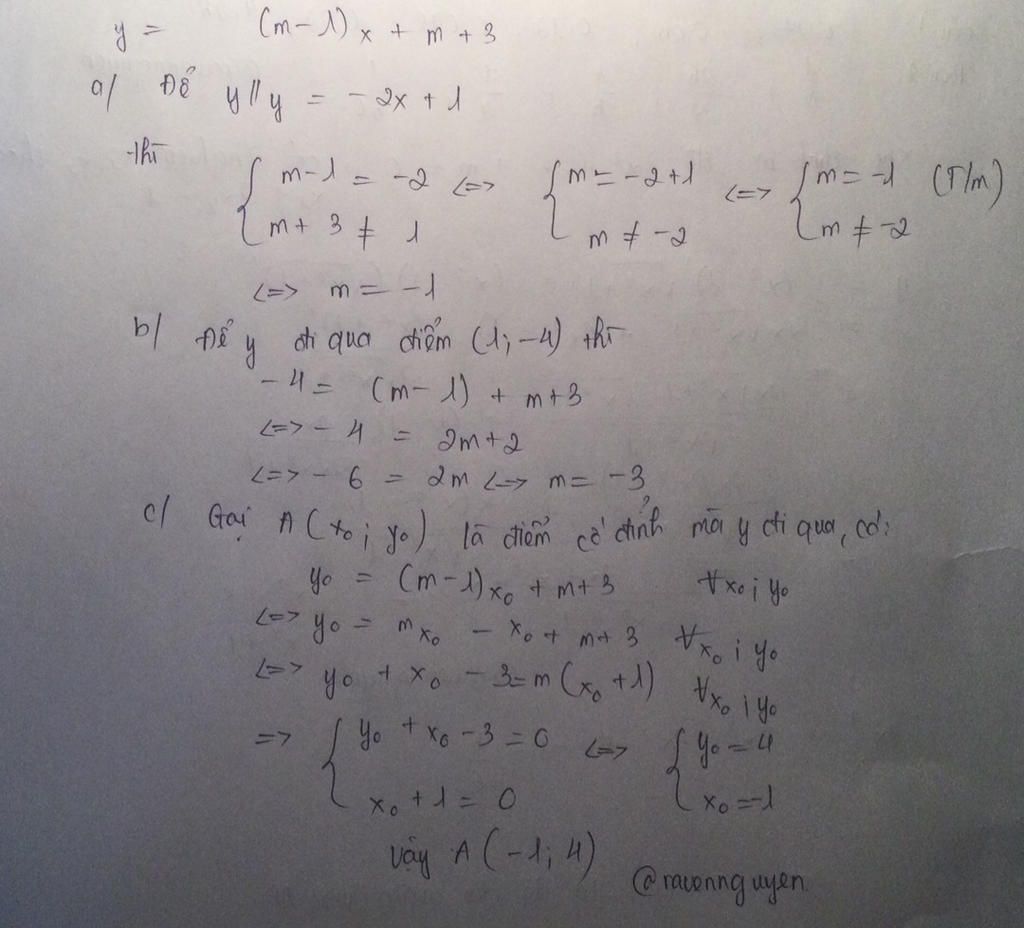 y = (m-1)x + m + 3
a/ Để y // y = -2x + 1
thì
{ m-1 = -2 <=> { m = -2+1 <=> { m = -1 (T/m)
m + 3 ≠ 1 m ≠ -2 m ≠ -2
<=> m = -1
b/ Để y đi qua điểm (1; -4) thì
-4 = (m-1) + m+3
<=> -4 = 2m+2
<=> -6 = 2m <=> m = -3
c/ Gọi A (x₀; y₀) là điểm cố định mà y đi qua, có:
y₀ = (m-1)x₀ + m+3 ∀x₀; y₀
<=> y₀ = mx₀ - x₀ + m+3 ∀x₀; y₀
<=> y₀ + x₀ - 3 = m(x₀+1) ∀x₀; y₀
=> { y₀ + x₀ - 3 = 0 <=> { y₀ = 4
x₀ + 1 = 0 x₀ = -1
Vậy A (-1; 4)
@ravonnguyen